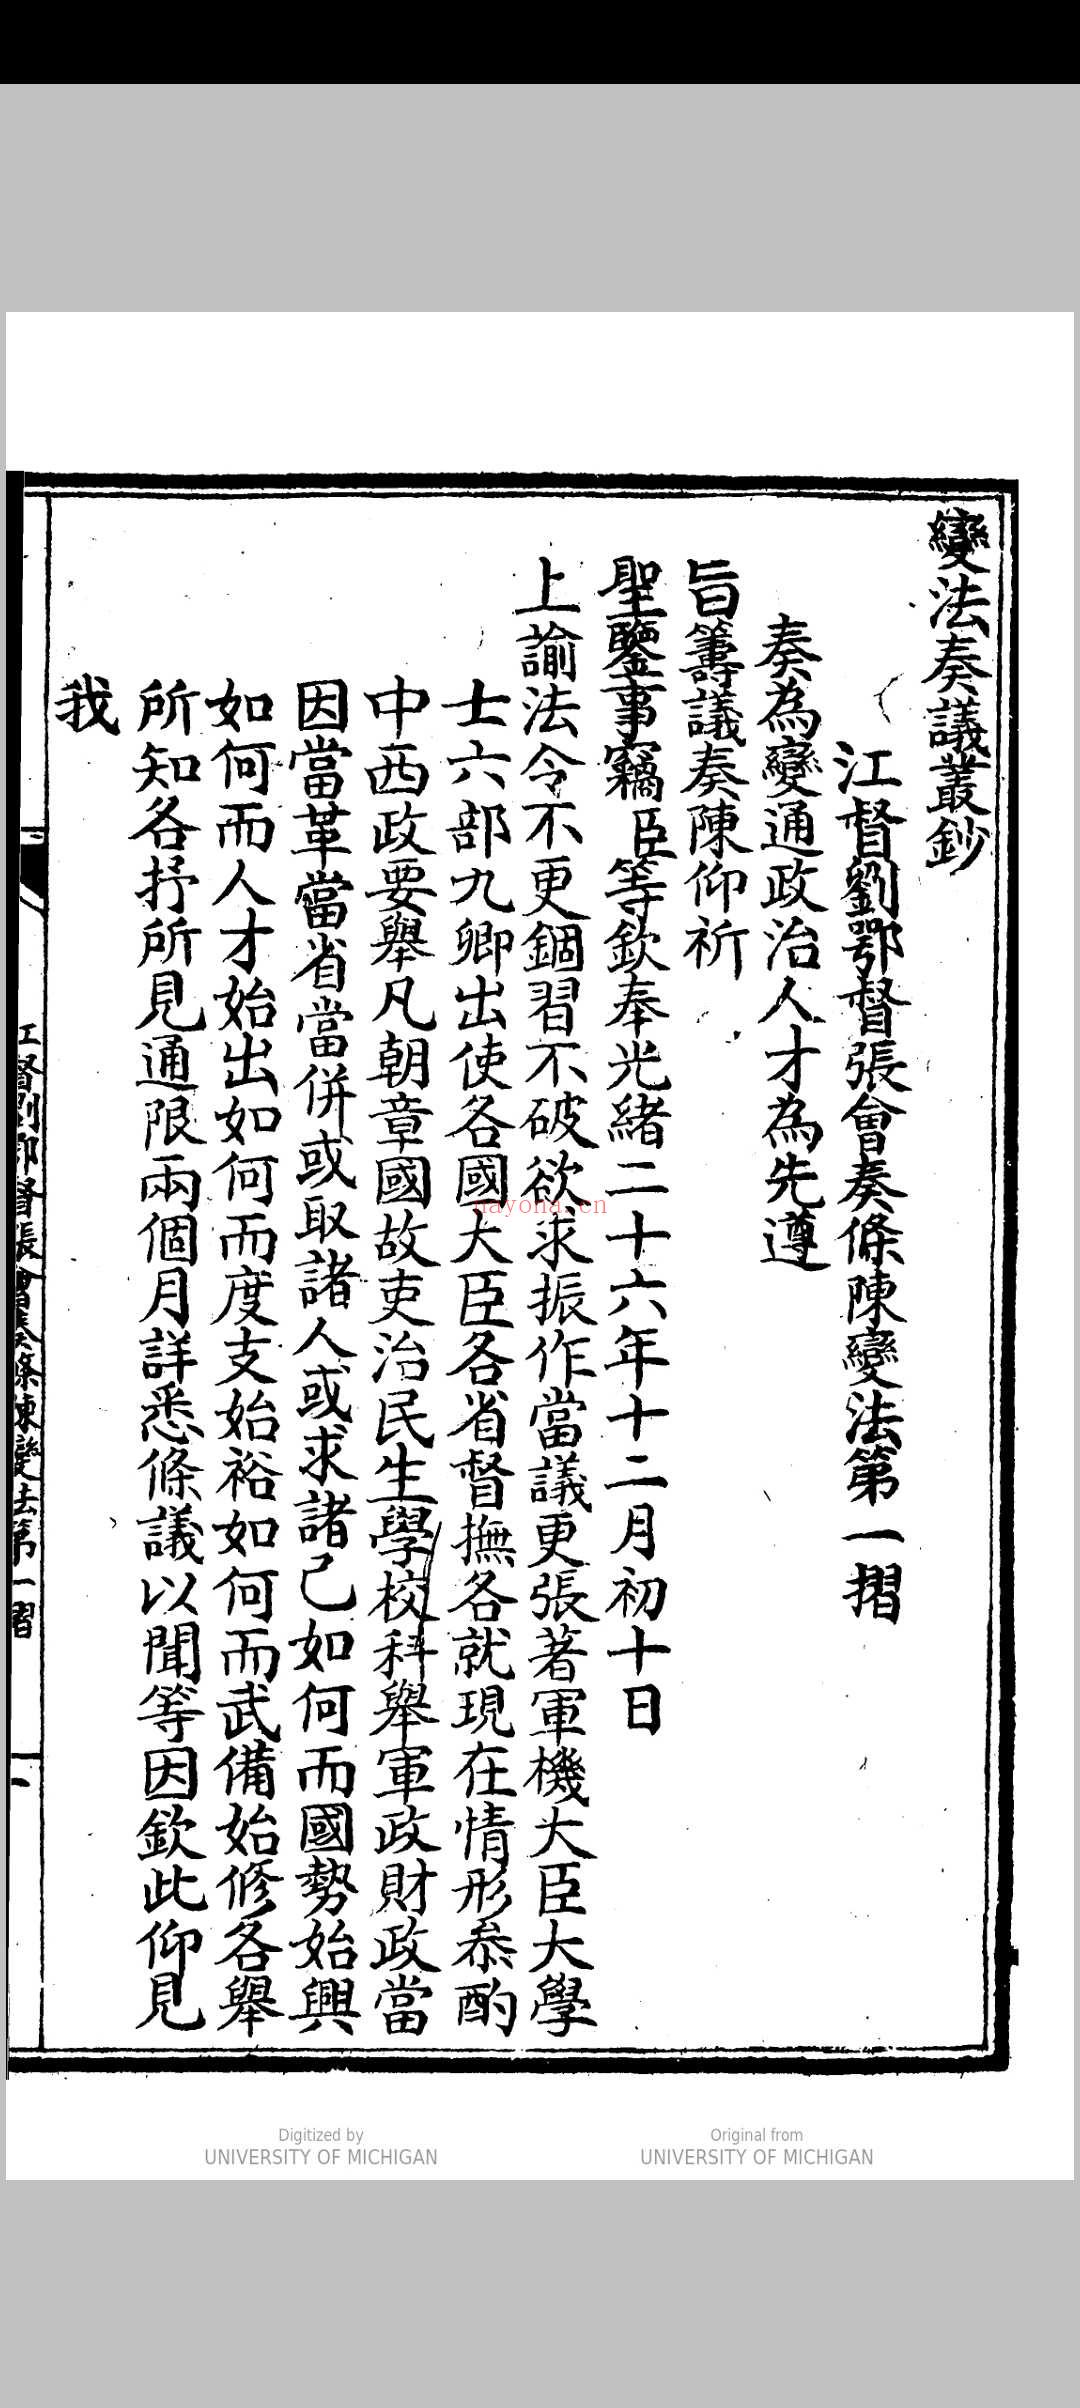 變法奏議叢鈔
江督劉鄂督張會奏條陳變法第一摺
奏為變通政治人才為先遵
旨籌議奏陳仰祈
聖鑒事竊臣等欽奉光緒二十六年十二月初十日
上諭法令不更錮習不破欲求振作當議更張著軍機大臣大學
士六部九卿出使各國大臣各省督撫各就現在情形叅酌
中西政要舉凡朝章國故吏治民生學校科舉軍政財政當
因當革當省當併或取諸人或求諸己如何而國勢始興
如何而人才始出如何而度支始裕如何而武備始修各舉
所知各抒所見通限兩個月詳悉條議以聞等因欽此仰見
我
江督劉鄂督張會奏條陳變法第一摺
一
nayona.cn
Digitized by
UNIVERSITY OF MICHIGAN
Original from
UNIVERSITY OF MICHIGAN